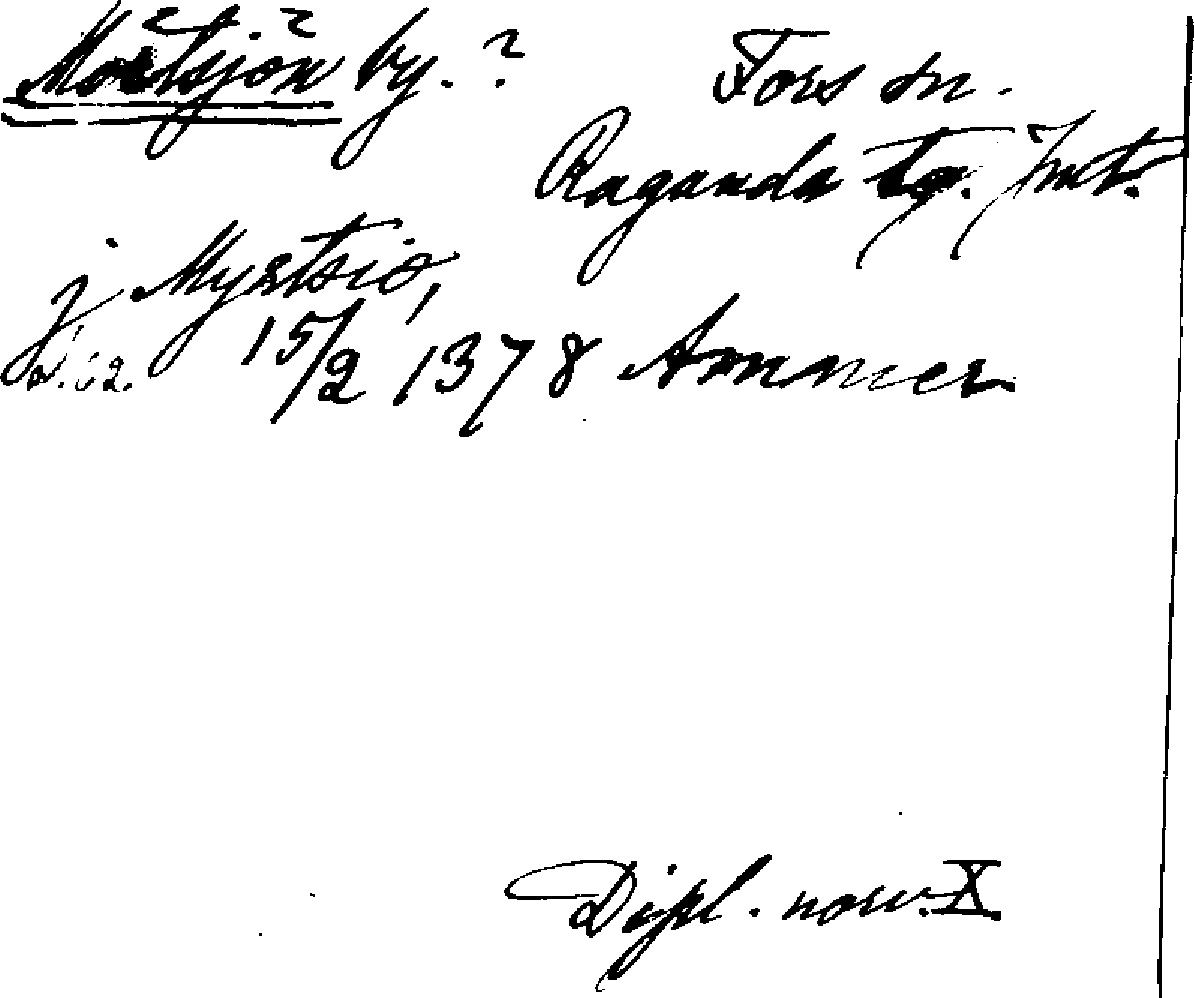 Mörtsjön by. ? Fors sn.
Ragunda tg. Jmt.
j Myrtsio,
s. 62. 15/2 1378 Ammer
Dipl. norv. X.